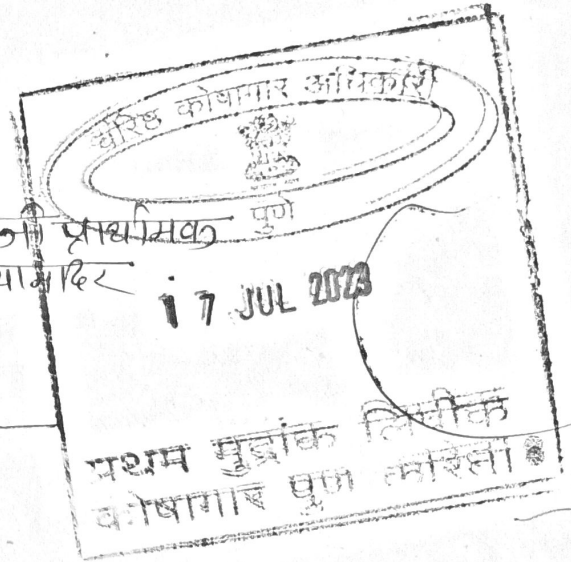 वरिष्ठ कोषागार अधिकारी
पुणे
प्राथमिक
17 JUL 2023
प्रथम मुद्रांक लिपीक
कोषागार पुणे करिता